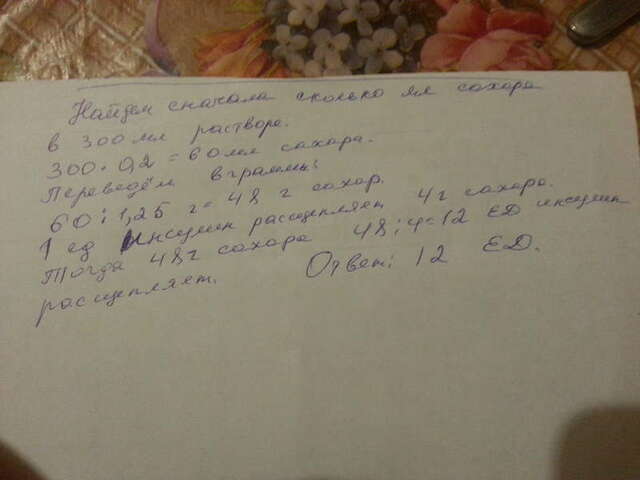 Найдем сначала сколько мл сахара
в 300 мл раствора.
300 · 0,2 = 60 мл сахара.
Переведём в граммы:
60 : 1,25 г = 48 г сахар.
1 ед Инсулин расщепляет 4 г сахара.
Тогда 48 г сахара 48 : 4 = 12 ЕД инсулин
расщепляет. Ответ: 12 ЕД.